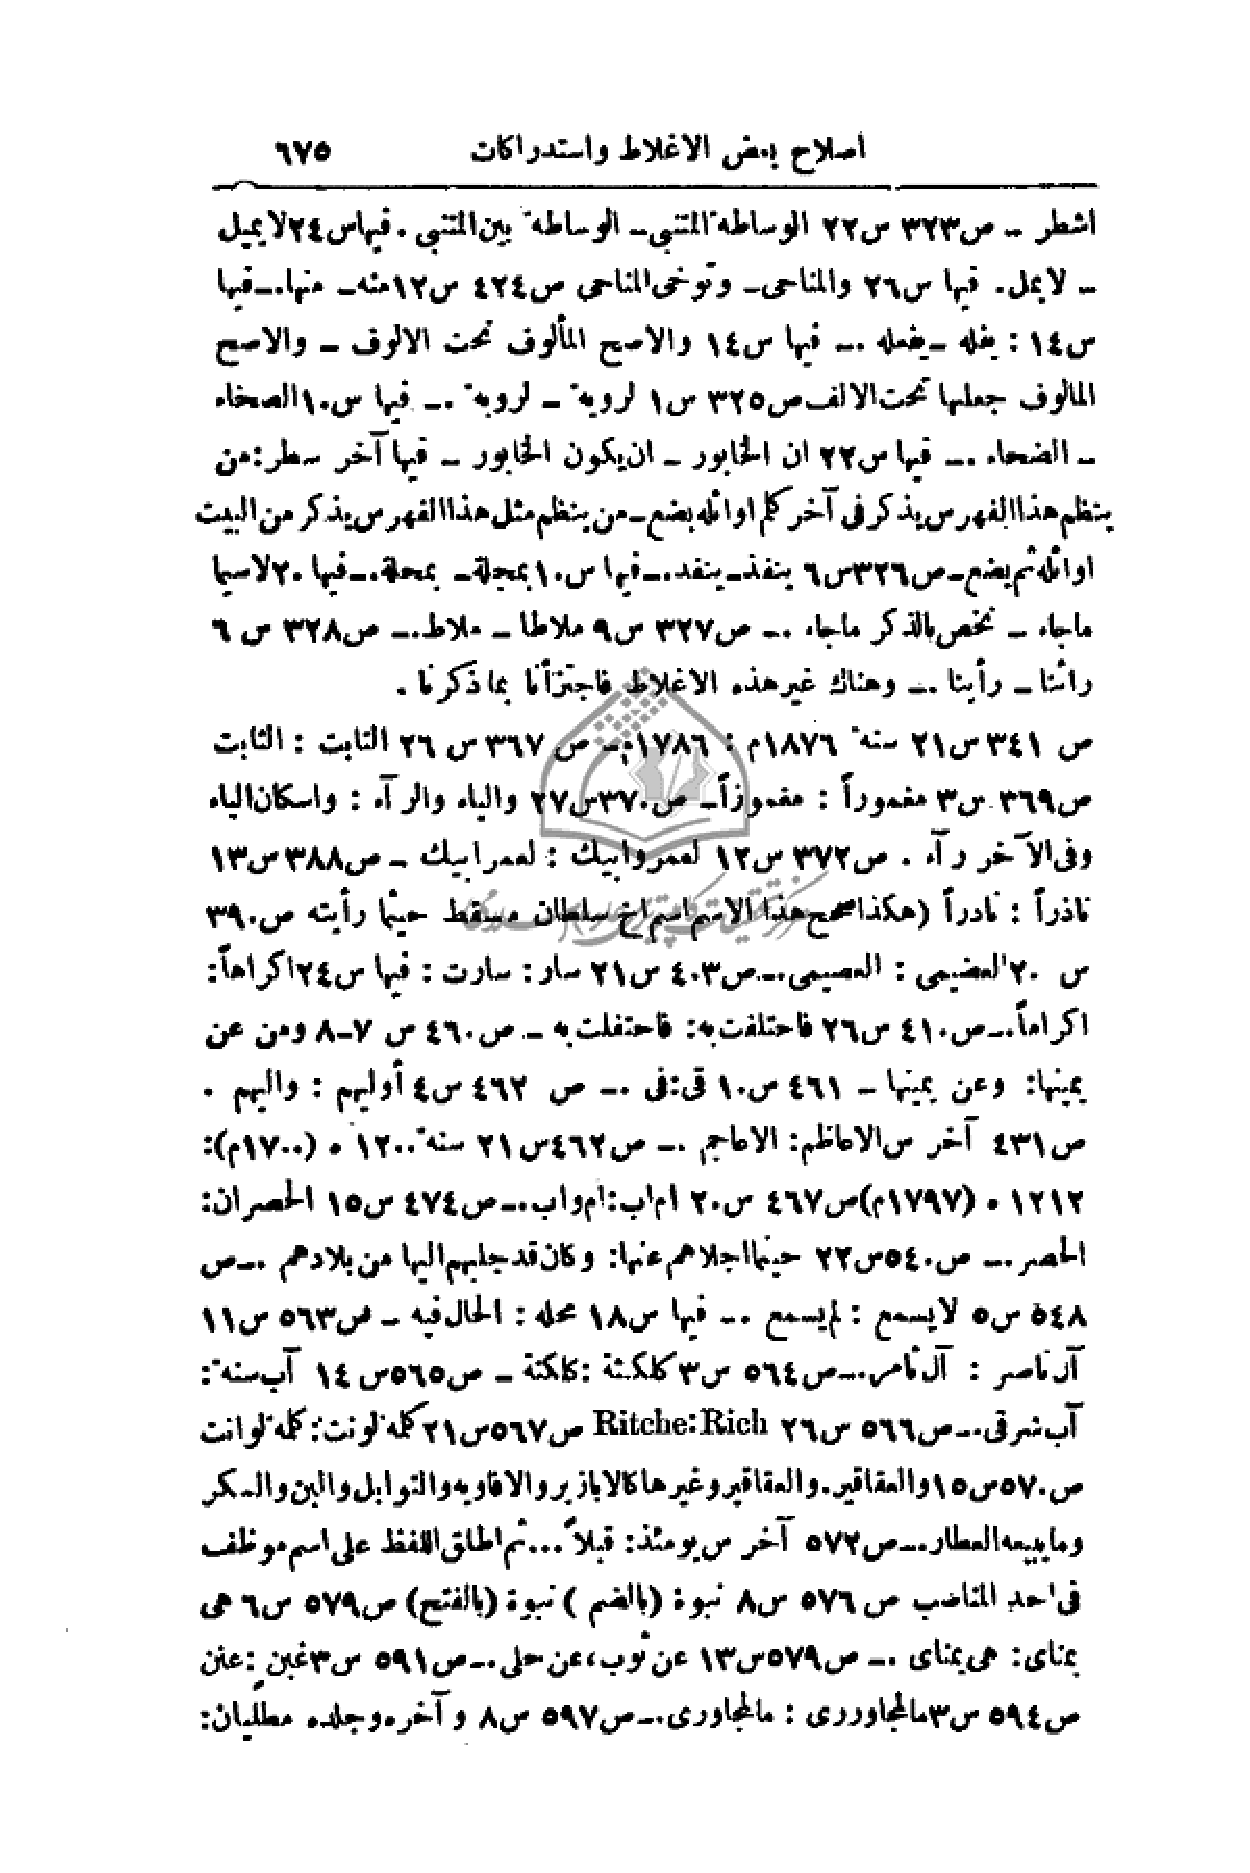 اصلاح بعض الاغلاط واستدراكات ٦٧٥
اشطر – ص٣٢٣ س٢٢ الوساطة المتنبي – الوساطة بين المتنبي . فيها س٢٤ لا يميل
– لا يمل . فيها س٢٦ والمناحى – وتوخى المناحى ص٤٢٤ س١٢ منه – منها .– فيها
س١٤ : يغله – يفعله .– فيها س١٤ والاصح المألوف تحت الالوف – والاصح
المالوف جعلها تحت الالف ص٣٢٥ س١ لروبة – لروبة .– فيها س١٠ الصخاء
– الضحاء .– فيها س٢٢ ان الخابور – ان يكون الخابور – فيها آخر سطر : من
ينظم هذا الفهرس يذكر فى آخر كلم اوائله بضع – من ينظم مثل هذا الفهرس يذكر من البيت
اوائله ثم يضع – ص٣٢٦ س٦ ينفذ – ينقد .– فيها س١٠ بمجلة – بمحلة .– فيها ٢٠ لا سيما
ماجاء – نخص بالذكر ماجاء .– ص٣٢٧ س٩ ملاطا – ملاط .– ص٣٢٨ س ٦
رائنا – رأينا .– وهناك غير هذه الاغلاط فاجتزأنا بما ذكرنا .
ص ٣٤١ س٢١ سنة ١٨٧٦م : ١٧٨٦م – ص ٣٦٧ س ٢٦ التابت : الثابت
ص٣٦٩ س٣ مغموراً : مغموزاً – ص٣٧٠ س٢٧ والياء والرآء : واسكان الياء
وفى الآخر رآء . ص٣٧٢ س١٢ لعمر وابيك : لعمر ابيك – ص٣٨٨ س١٣
ناذراً : نادراً (هكذا صحح هذا الاسم اسم اخ سلطان مسقط حيثما رأيته ص٣٩٠
س ٢٠ العضيمى : العصيمى .– ص٤٠٣ س٢١ سار : سارت : فيها س٢٤ اكراهاً :
اكراماً .– ص٤١٠ س٢٦ فاحتلفت به : فاحتفلت به – ص٤٦٠ س ٧–٨ ومن عن
يمينها : وعن يمينها – ٤٦١ س١٠ قى : فى .– ص ٤٦٢ س٤ أوليهم : واليهم .
ص٤٣١ آخر س الاعاظم : الاعاجم .– ص٤٦٢ س٢١ سنة ١٢٠٠ ه (١٧٠٠م) :
١٢١٢ ه (١٧٩٧م) ص٤٦٧ س٢٠ ام اب : ام واب .– ص٤٧٤ س١٥ الحصران :
الحصر .– ص٥٤٠ س٢٢ حينما اجلاهم عنها : وكان قد جلبهم اليها من بلادهم .– ص
٥٤٨ س٥ لا يسمع : لم يسمع .– فيها س١٨ محله : الحال فيه – ص٥٦٣ س١١
آل ناصر : آل ثامر .– ص٥٦٤ س٣ كلكتة : كلكتة – ص٥٦٥ س١٤ آب سنة :
آب شرقى .– ص٥٦٦ س٢٦ Ritche: Rich ص٥٦٧ س٢١ كلمة لونت : كلمة لوانت
ص٥٧٠ س١٥ والعقاقير . والعقاقير وغيرها كالابازير والافاويه والتوابل والبن والسكر
وما يبيعه العطار .– ص٥٧٢ آخر س يومئذ : قبلاً ... ثم اطلق اللفظ على اسم موظف
فى احد المناصب ص ٥٧٦ س٨ نبوة (بالضم) نبوة (بالفتح) ص٥٧٩ س٦ هى
بمناى : هى بمناى .– ص٥٧٩ س١٣ عن ثوب ، عن حلى .– ص٥٩١ س٣ غبن : عنن
ص٥٩٤ س٣ مالمجاوررى : مالمجاورى .– ص٥٩٧ س٨ و آخره وجلده مطلّيان :